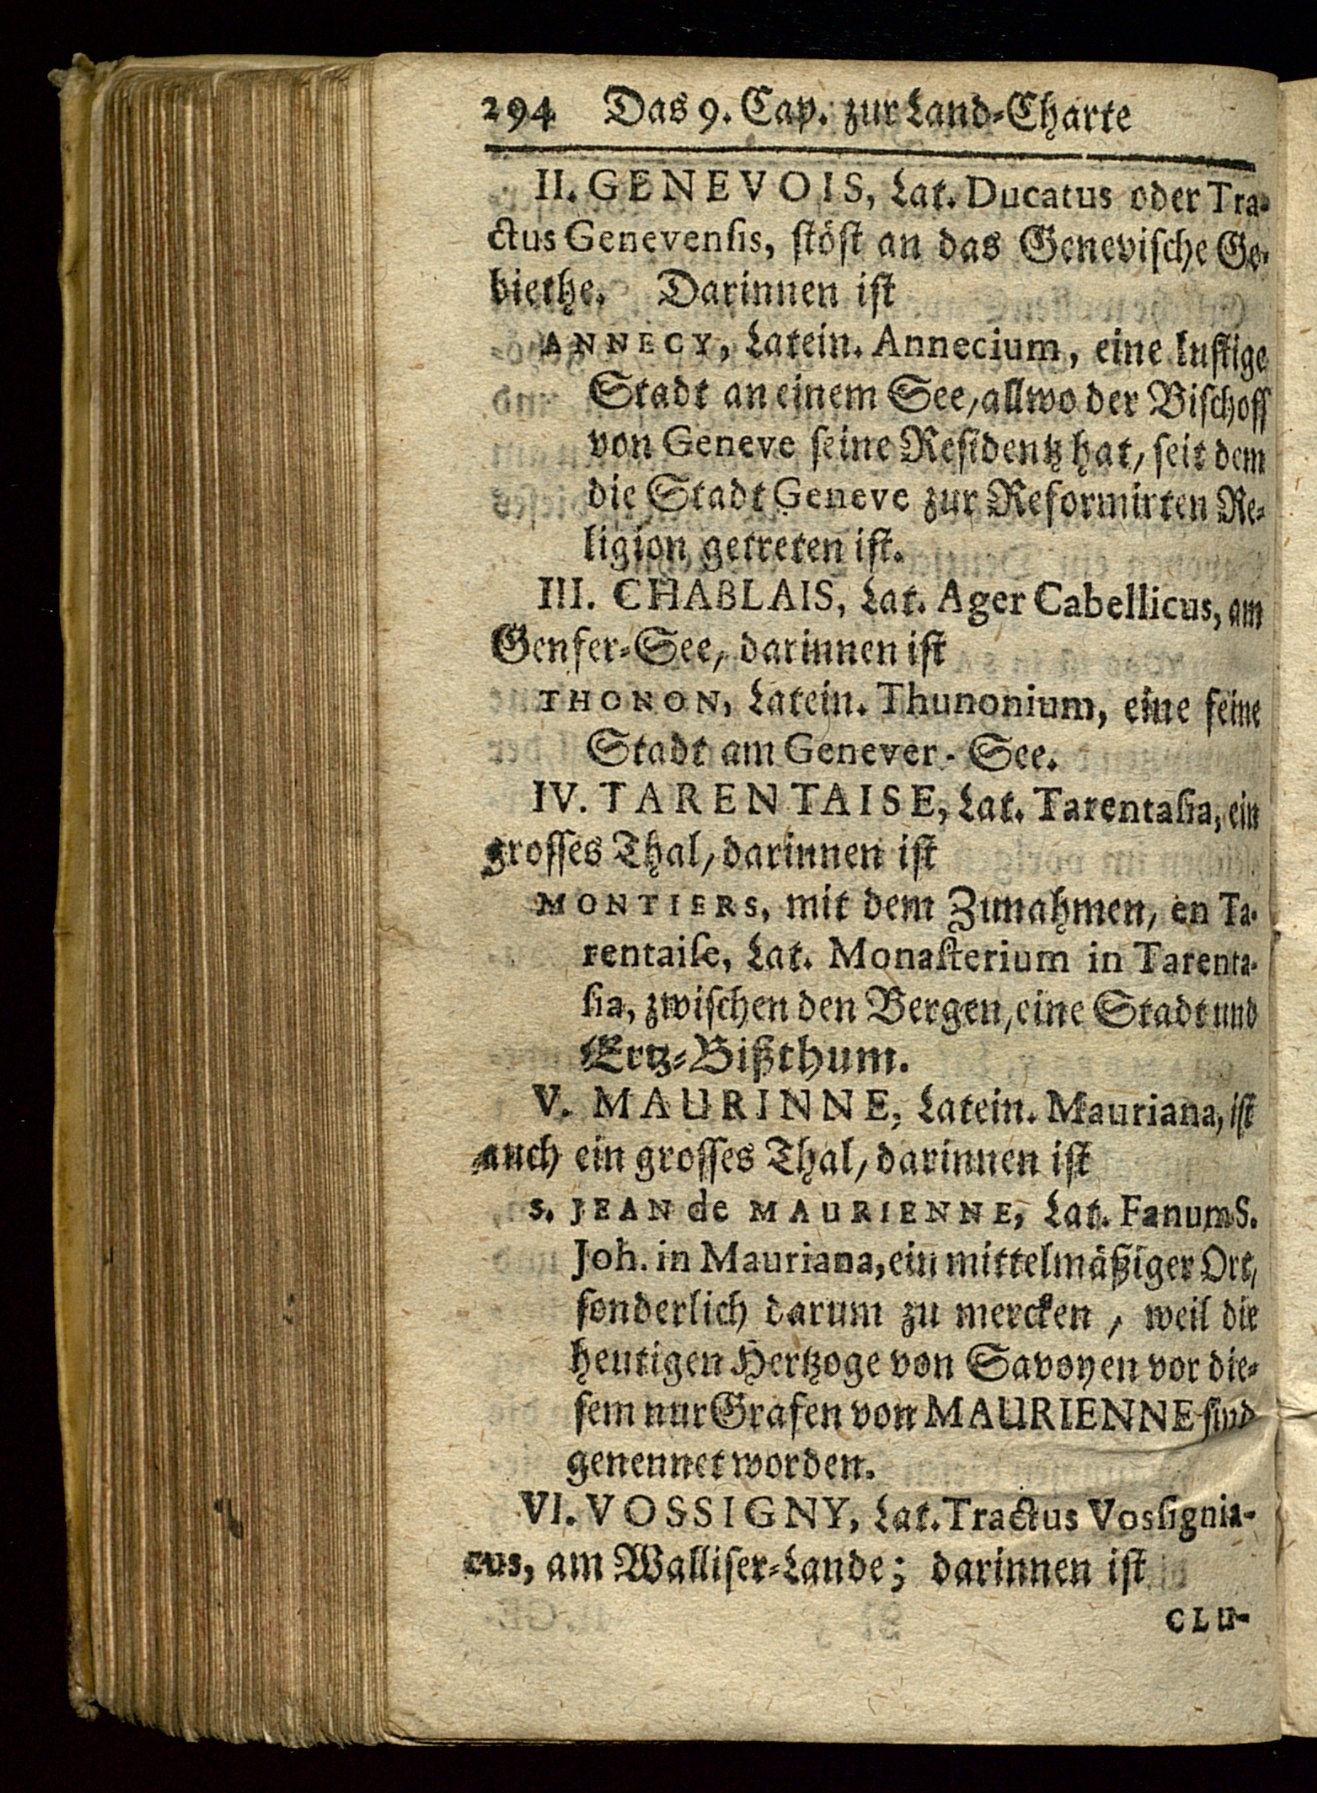 294 Das 9. Cap. zur Land-Charte
II. GENEVOIS, Lat. Ducatus oder Tra-
ctus Genevensis, stöst an das Genevische Ge-
biethe. Darinnen ist
ANNECY, Latein. Annecium, eine lustige
Stadt an einem See, allwo der Bischoff
von Geneve seine Residentz hat, seit dem
die Stadt Geneve zur Reformirten Re-
ligion getreten ist.
III. CHABLAIS, Lat. Ager Cabellicus, am
Genfer-See, darinnen ist
THONON, Latein. Thunonium, eine feine
Stadt am Genever-See.
IV. TARENTAISE, Lat. Tarentasia, ein
grosses Thal, darinnen ist
MONTIERS, mit dem Zunahmen, en Ta-
rentaise, Lat. Monasterium in Tarenta-
sia, zwischen den Bergen, eine Stadt und
Ertz-Bißthum.
V. MAURINNE, Latein. Mauriana, ist
auch ein grosses Thal, darinnen ist
S. JEAN de MAURIENNE, Lat. Fanum S.
Joh. in Mauriana, ein mittelmäßiger Ort,
sonderlich darum zu mercken, weil die
heutigen Hertzoge von Savoyen vor die-
sem nur Grafen von MAURIENNE sind
genennet worden.
VI. VOSSIGNY, Lat. Tractus Vossignia-
cus, am Walliser-Lande; darinnen ist
CLU-